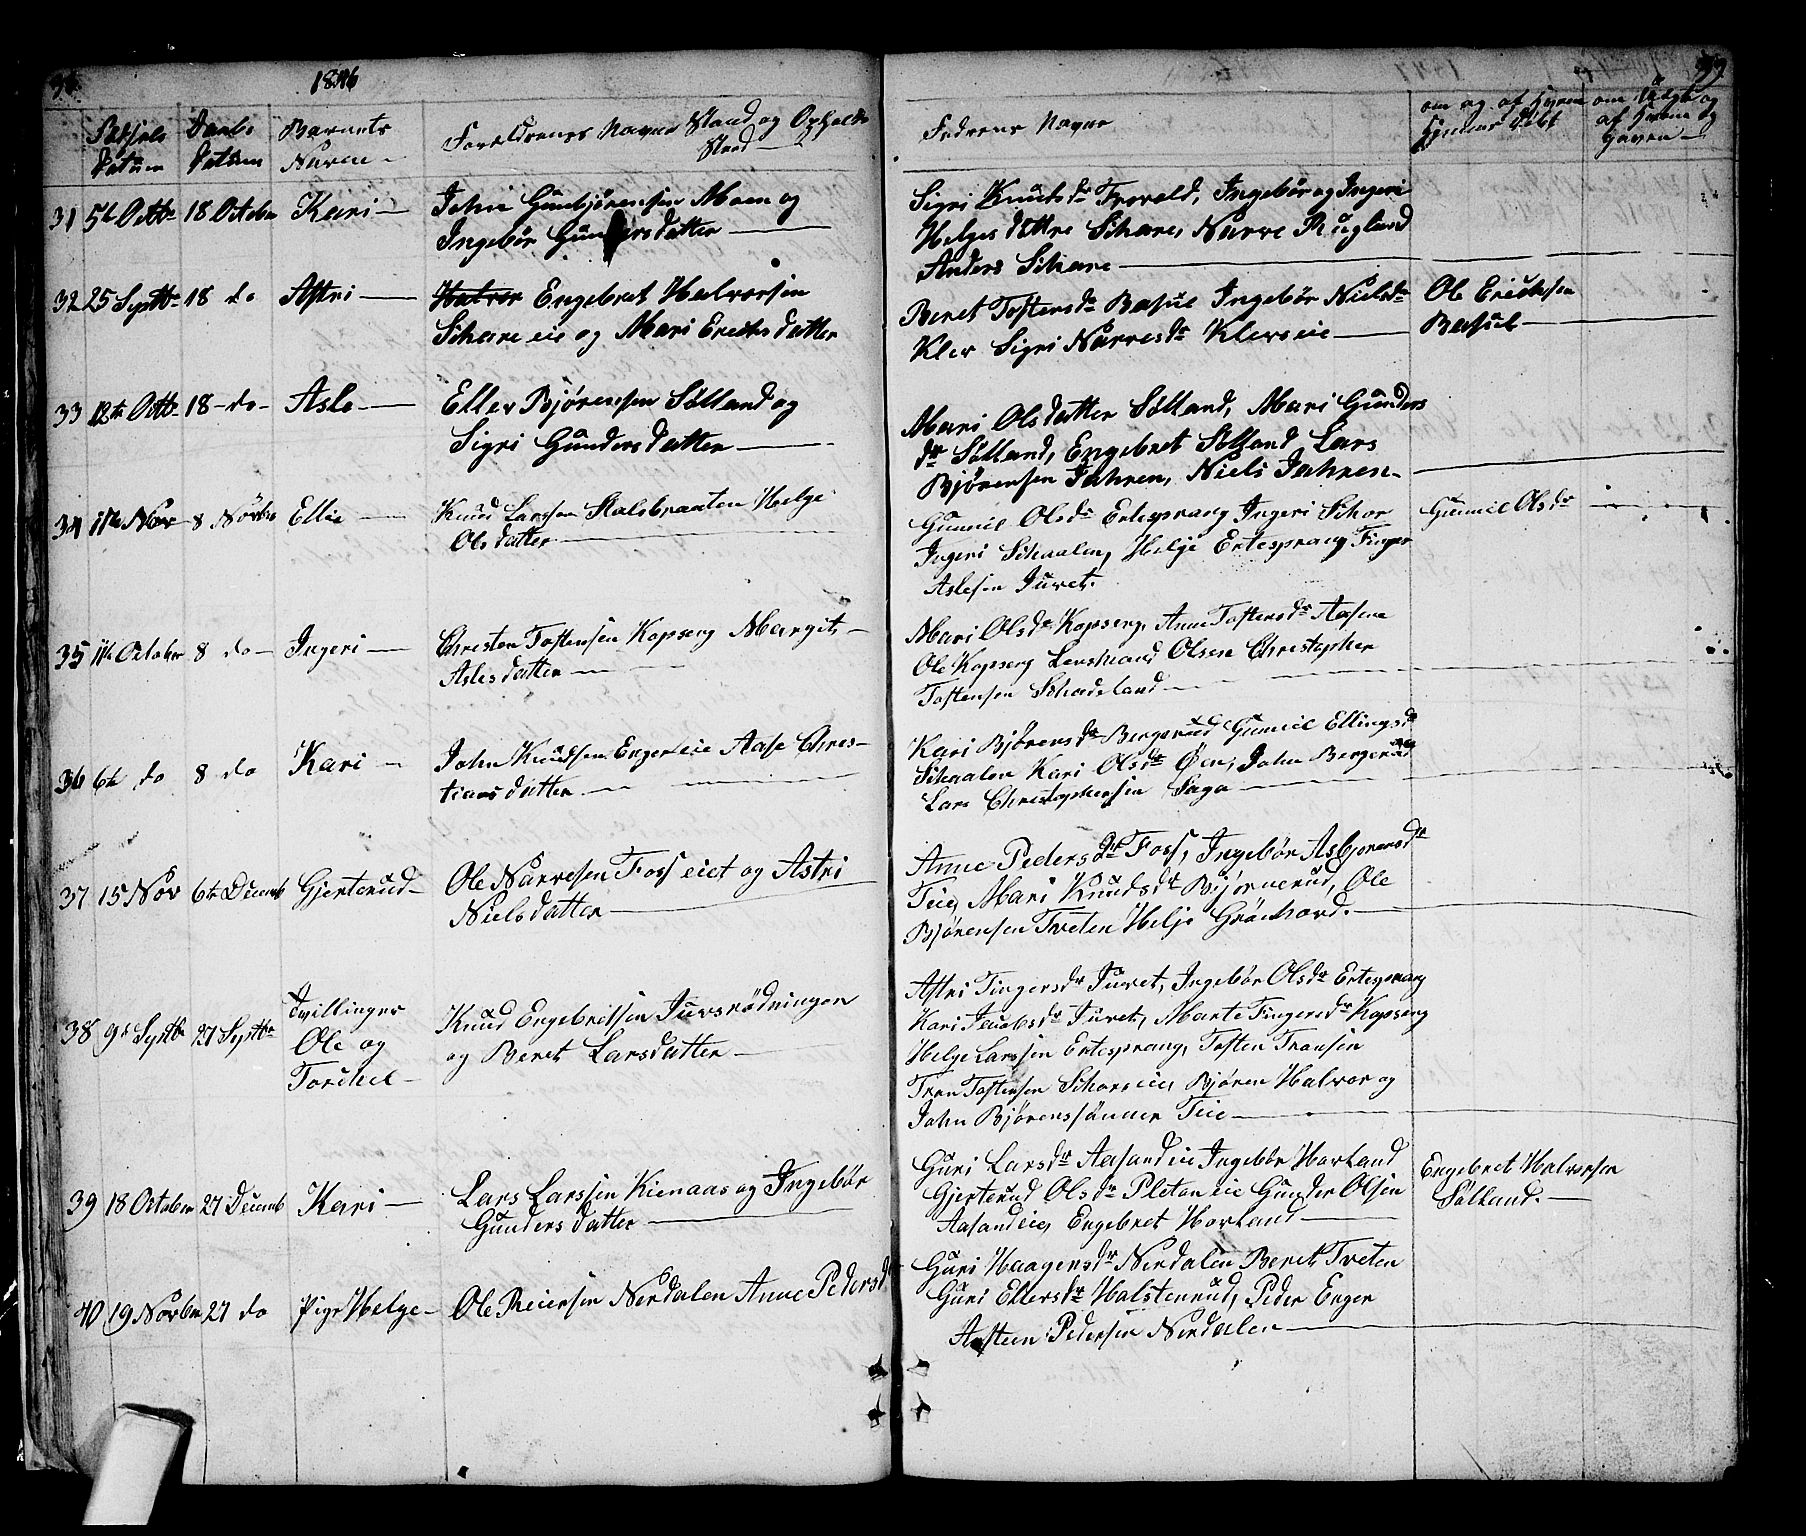 1846
99
Fødsels Datum
Daabs Datum
Barnets Navn
Forældrenes Navne Stand og Opholds Sted
Faderens Navne
om og af hvem hjemme døbt
31 5te Octbr 18 October Kari
John Gunbjørensen Moen og
Ingebør Gundersdatter
Sigri Knutsdr Trovold, Ingebør og Ingeri
Helges døttre Schare, Narve Rugland
Anders Schare
32 25 Septbr 18 do Astri
Halvor Engebret Halvorsen
Schare eie og Mari Erichsdatter
Beret Tostensdr Basul Ingebør Nielsdr
Klev Sigri Narvesdr Klevseie
Ole Erichsen
Basul
33 12te Octbr 18 do Asle
Ellev Bjørensen Sølland og
Sigri Gundersdatter
Mari Olsdatter Sølland, Mari Gunders
dr Sølland, Engebret Sølland Lars
Bjørensen Jahren, Niels Jahren
34 1te Nov 8 Novbr Ellie
Knud Larssen Stalsbraaten Helge
Olsdatter
Gunnil Olsdr Ertesprang Ingeri Schar
Ingeri Schaalen, Helje Ertesprang Finger
Aslesen Juvet.
Gunnil Olsdr
35 11te October 8 do Ingeri
Christen Tostensen Kopseng Margit
Aslesdatter
Mari Olsdr Kopseng, Anne Tostensdr Aasene
Ole Kopseng Lensmand Olsen Christopher
Tostensen Schadeland
36 6te do 8 do Kari
John Knudsen Engereie Aase Chres-
tiansdatter
Kari Bjørensdr Bergerud Gunnil Ellingsdr
Schaalen Kari Olsdr Øen, John Bergerud
Lars Christophersen Saga
37 15 Nov 6te Decemb Gjerterud
Ole Narvesen Foss eiet og Astri
Nielsdatter
Anne Pedersdr Foss, Ingebør Asbjørensdr
Teie, Mari Knudsdr Bjørnerud, Ole
Bjørensen Tveten Helje Gråehord.
38 9de Septbr 27 Septbr Tvillinger
Ole og
Torchel
Knud Engebretsen Juvsrödningen
og Beret Larsdatter
Astri Fingersdr Juvet, Ingebør Olsdr Ertesprang
Kari Jacobsdr Juvet, Marte Fingersdr Kopseng
Helge Larssen Ertesprang, Tosten Transen
Tran Tostensen Schare eie, Bjøren Halvor og
John Bjørenssönner Teie
39 18 October 27 Decemb Kari
Lars Larssen Kienaas og Ingebør
Gundersdatter
Guri Larsdr Aasand eie Ingebør Havland
Gjerterud Olsdr Pletan eie Gunder Olsen
Aasandeie, Engebret Havland
Engebret Halvorsen
Sølland.
40 19 Novbr 27 do Pige Helge
Ole Reiersen Nerdalen Anne Pedersdr
Guri Haagensdr Nerdalen Beret Tveten
Guri Ellersdr Halstenrud, Peder Enger
Aasteen Pedersen Nerdalen